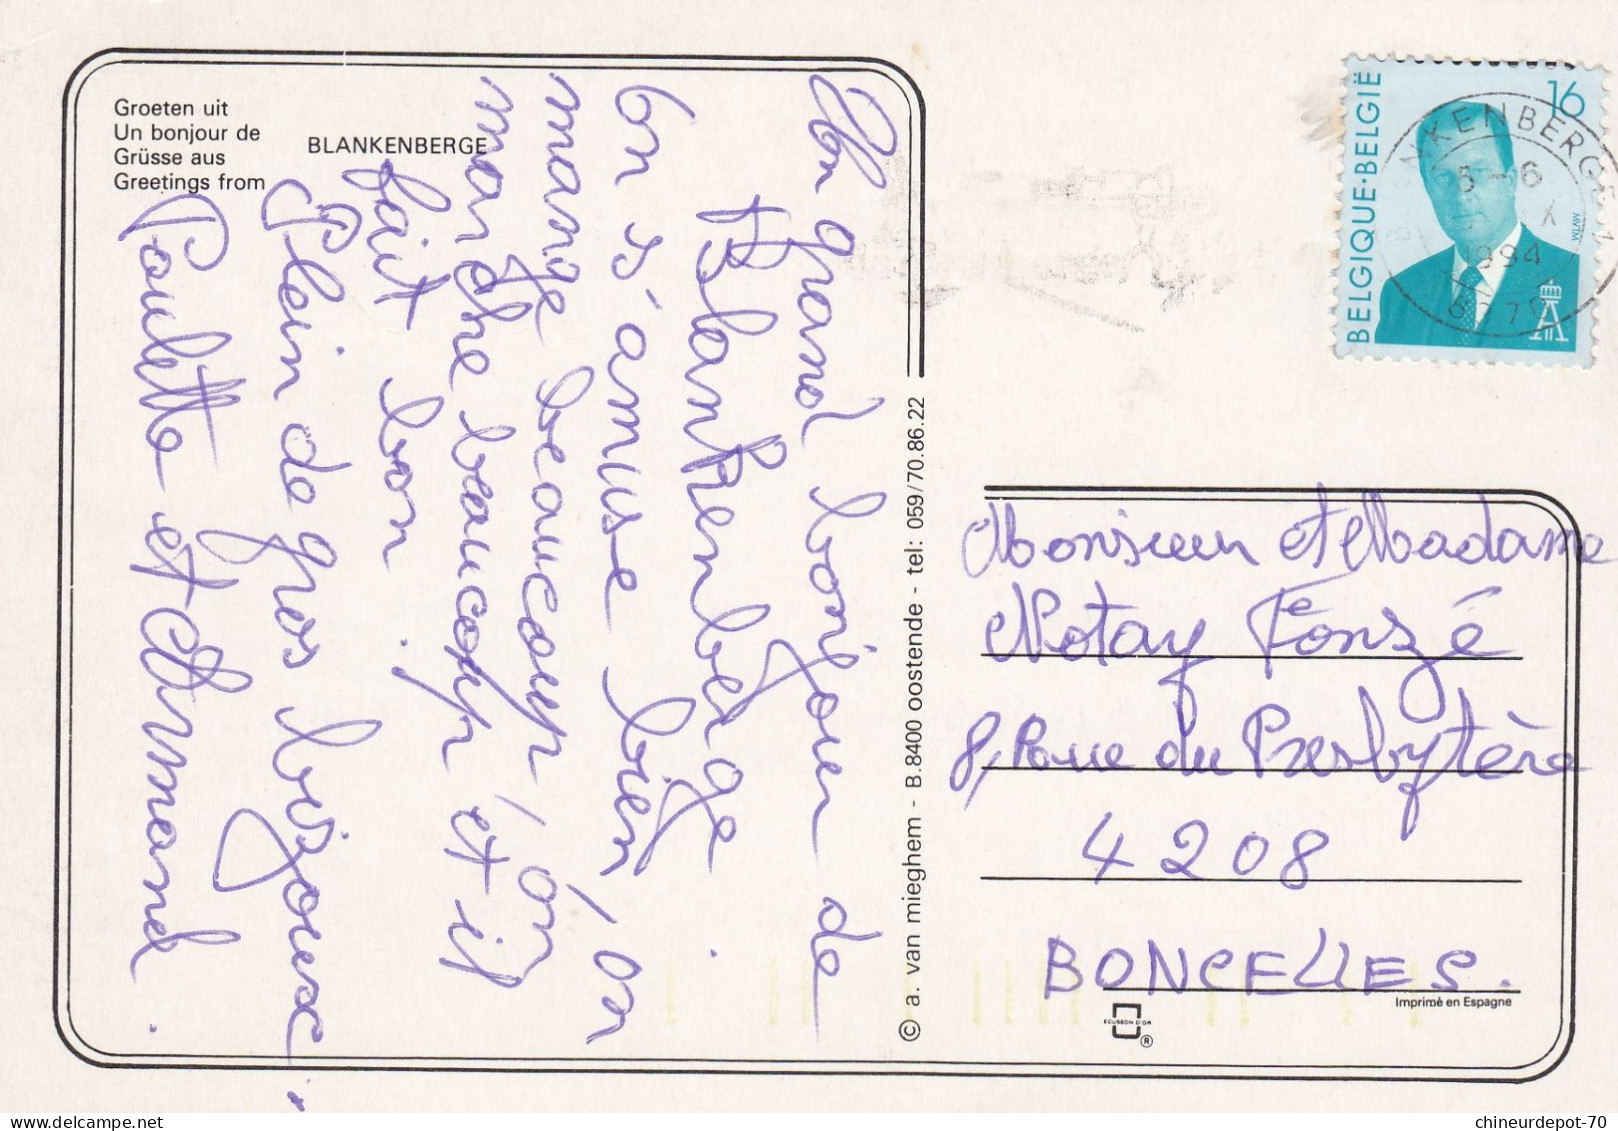 Groeten uit
Un bonjour de
Grüsse aus
Greetings from
BLANKENBERGE
Un grand bonjour de
Blankenberge.
On s'amuse bien, on
mange beaucoup, on
marche beaucoup et il
fait bon.
Plein de gros bizous.
Paulette et Armand.
© a. van mieghem - B.8400 oostende - tel: 059/70.86.22
BELGIQUE·BELGIË
16
MVTM
BLANKENBERGE 1
5-6
1994
8370
Monsieur et Madame
Notay Fonzé
8, Rue du Presbytère
4208
BONCELLES.
Imprimé en Espagne
ECUSSON D'OR
®
chineurdepot-70